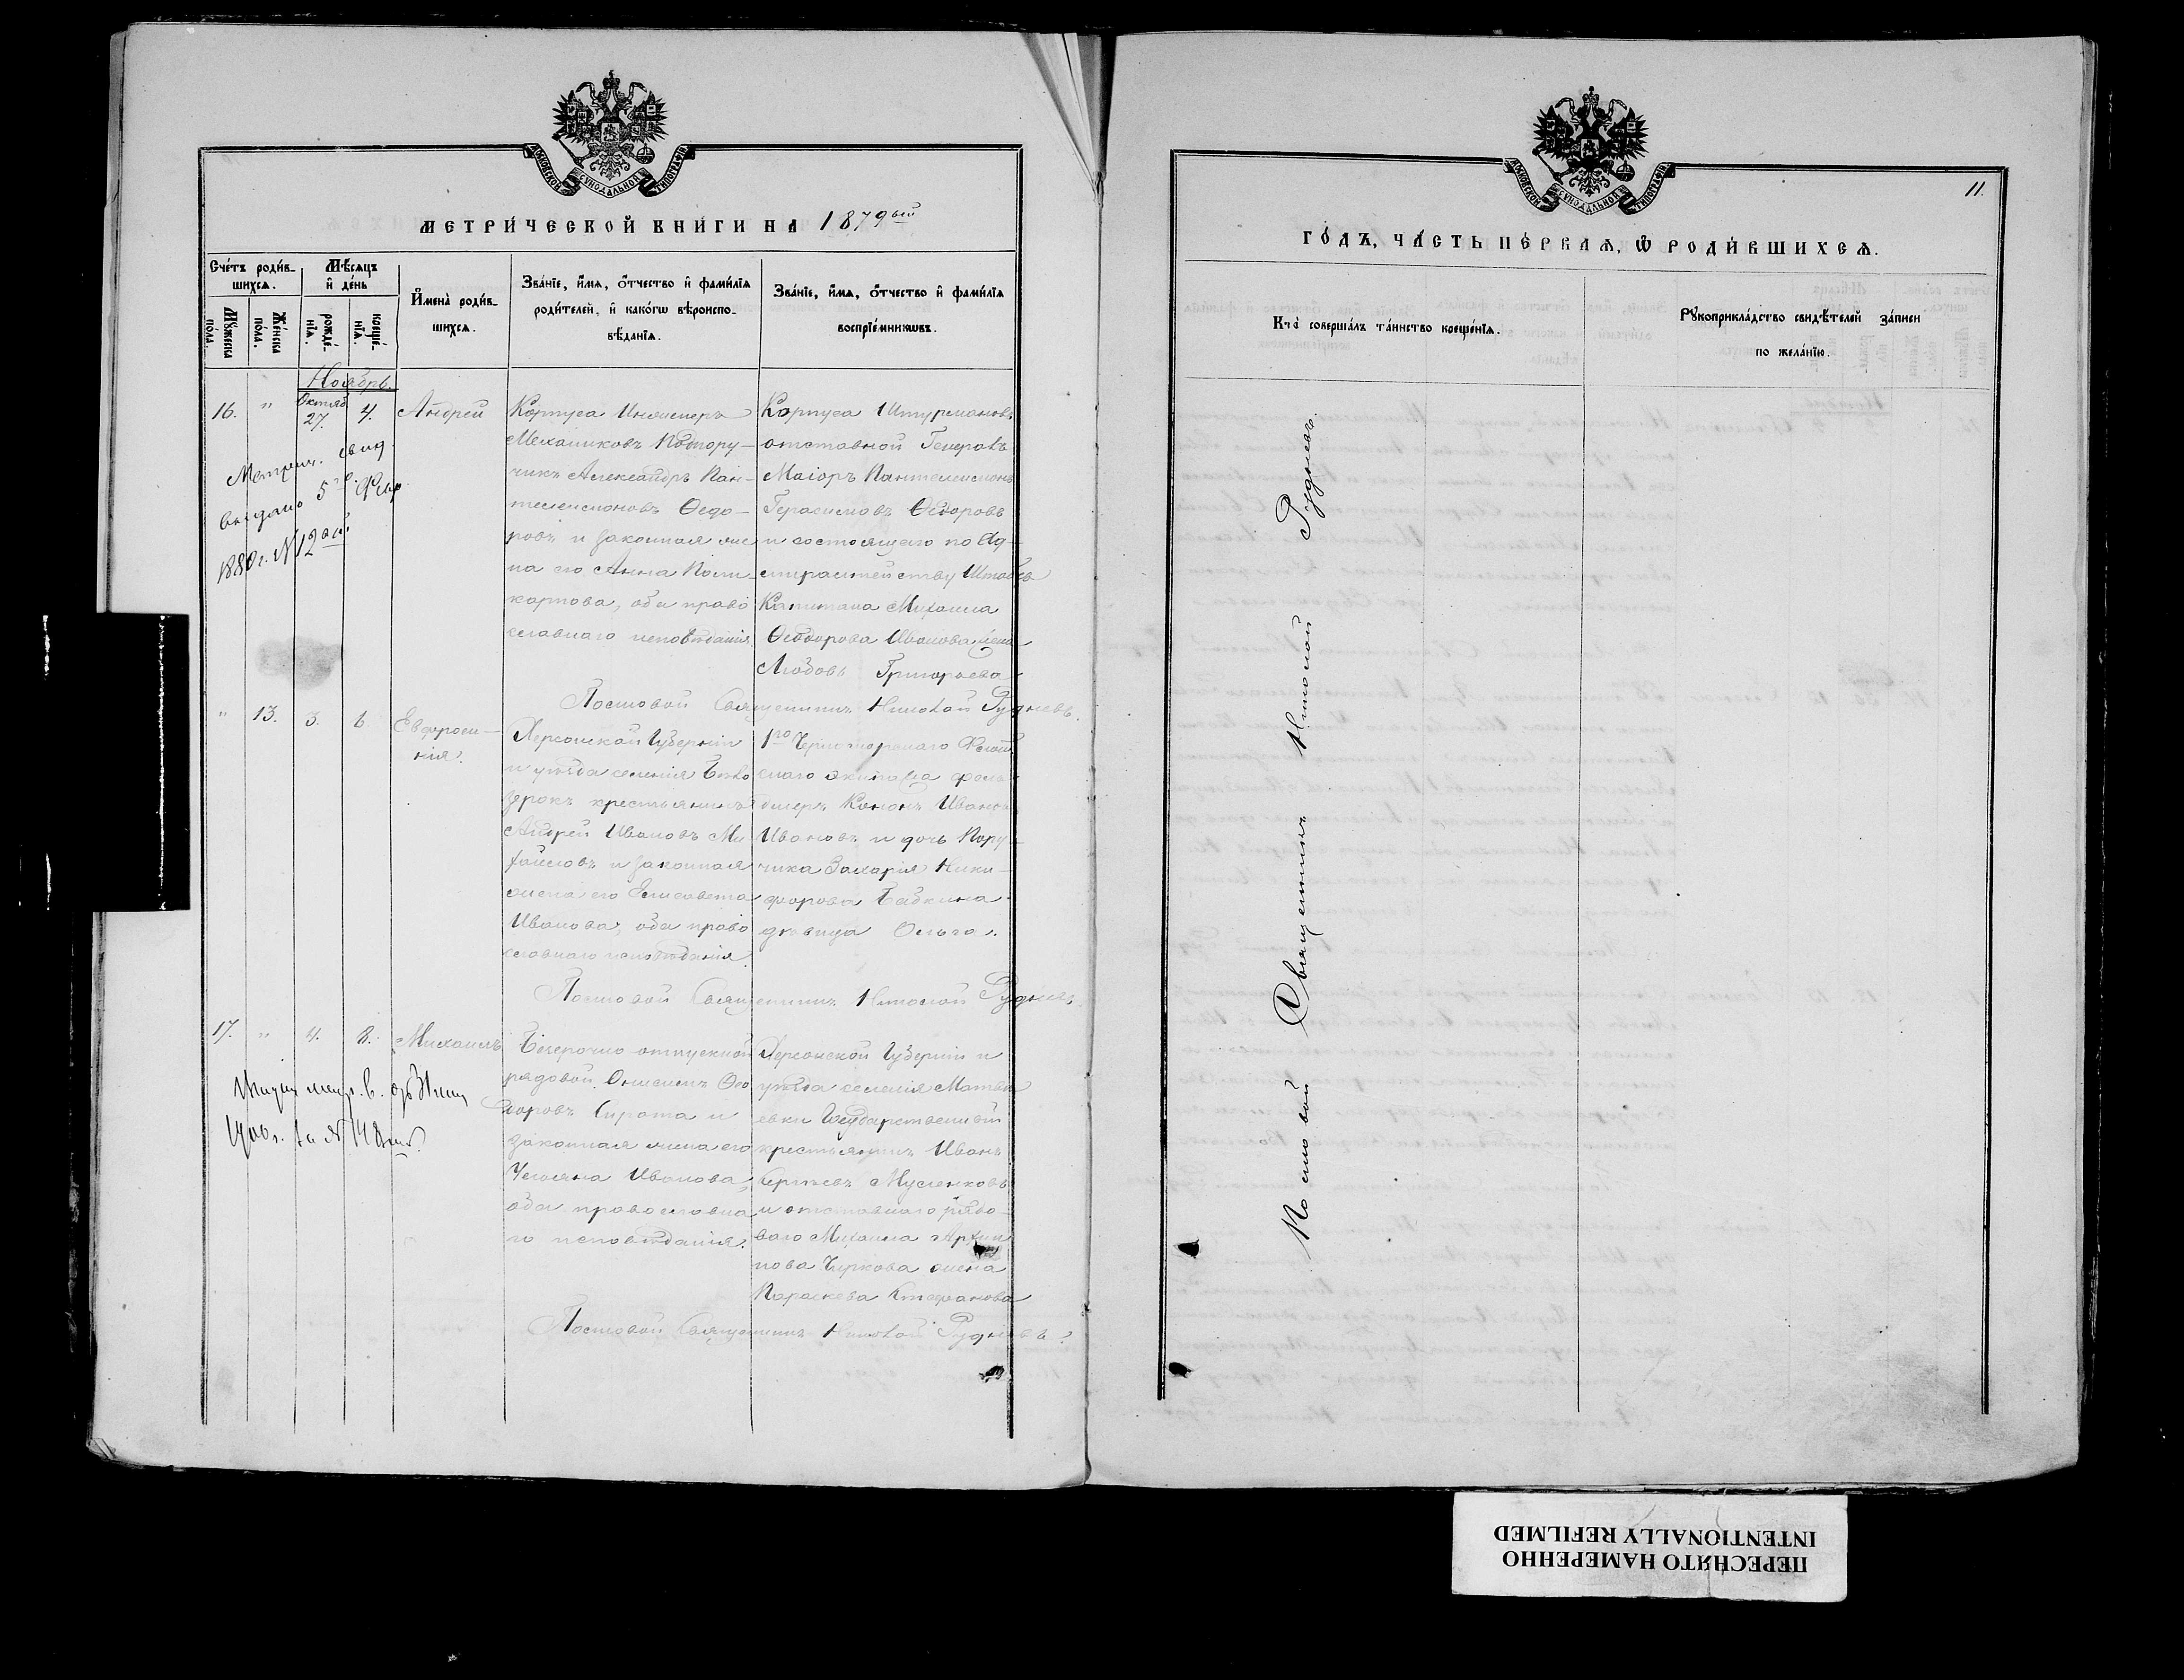 МОСКОВСКОЙ СУНОДАЛЬНОЙ ТИПОГРАФІИ
МЕТРИ́ЧЕСКОЙ КНИ́ГИ НА 1879ый
Сче́тъ роди́в-
шихсѧ.
Мꙋ́жеска по́ла.
Же́нска по́ла.
Мѣ́сѧцъ
и҆ де́нь
рожде́-
нїѧ.
креще́-
нїѧ.
И҆мена̀ роди́в-
шихсѧ.
Зва́нїе, и҆́мѧ, ѻ҆́тчество и҆ фами́лїѧ
роди́телей, и҆ како́гѡ вѣроиспо-
вѣ́данїѧ.
Зва́нїе, и҆́мѧ, ѻ҆́тчество и҆ фами́лїѧ
воспрїе́мникѡвъ.
Ноябрь.
16. " Октяб. 27. 4. Андрей
Метрич. свид.
выдано 5го Февр
1880 г. №12ый
Корпуса Инженеръ
Механиковъ Подпору-
чикъ Александръ Пан-
телеимоновъ Ѳедо-
ровъ и законная же
на его Анна Поли-
карпова, оба право
славнаго исповѣданія
Корпуса Штурмановъ
отставной Генералъ
Маіоръ Пантелеимонъ
Герасимовъ Ѳедоровъ
и состоящаго по Ад-
миралтейству Штабсъ
Капитана Михаила
Ѳеодорова Иванова жена
Любовь Григорьева
Постовой Священникъ Николай Рудневъ.
" 13. 3. 6 Евфроси-
нія.
Херсонской Губерніи
и уѣзда селенія Бѣло
зерокъ крестьянинъ
Андрей Ивановъ Ми
хайловъ и законная
жена его Елисавета
Иванова, оба право
славнаго исповѣданія.
1го Черноморскаго Флот
скаго экипажа фель-
дшеръ Кононъ Ивановъ
Ивановъ и дочь Пору-
чика Захарія Ники-
форова Бабкина
дѣвица Ольга.
Постовой Священникъ Николай Рудневъ.
17. " 4. 8. Михаилъ
Безсрочно отпускной
рядовой Онисимъ Ѳео
доровъ Сирота и
законная жена его
Ульяна Иванова,
оба православна
го исповѣданія.
Херсонской Губерніи и
уѣзда селенія Матвѣ
евки Государственный
крестьянинъ Иванъ
Сергѣевъ Мусіенковъ
и отставнаго рядо-
ваго Михаила Архип
пова Чиркова жена
Параскева Стефанова
Постовой Священникъ Николай Рудневъ
МОСКОВСКОЙ СУНОДАЛЬНОЙ ТИПОГРАФІИ
11.
ГО́ДЪ, ЧА́СТЬ ПЕ́РВАѦ, Ѽ РОДИ́ВШИХСѦ.
Кто̀ соверша́лъ та́инство креще́нїѧ.
Рꙋкоприкла́дство свидѣ́телей за́писи
по жела́нїю.
Постовой Священникъ Николай Рудневъ.
ПЕРЕСНЯТО НАМЕРЕННО
INTENTIONALLY REFILMED